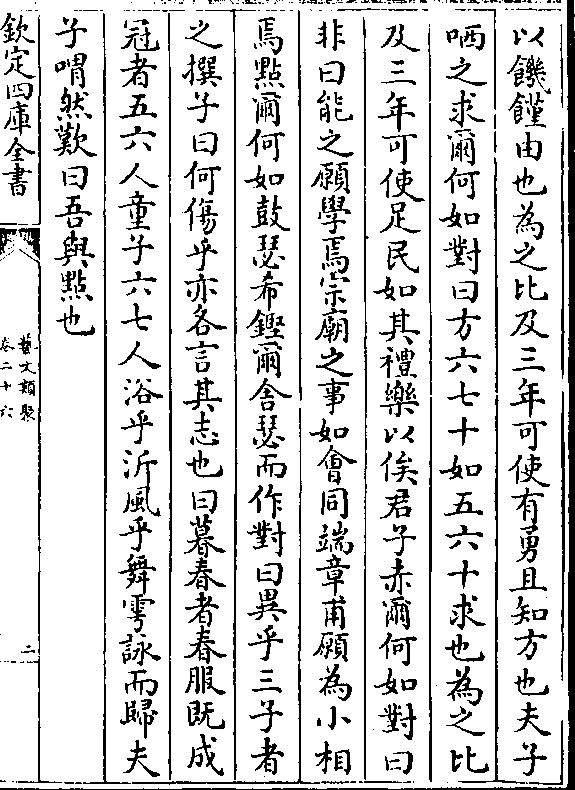 以饑饉由也為之比及三年可使有勇且知方也夫子
哂之求爾何如對曰方六七十如五六十求也為之比
及三年可使足民如其禮樂以俟君子赤爾何如對曰
非曰能之願學焉宗廟之事如會同端章甫願為小相
焉點爾何如鼓瑟希鏗爾舍瑟而作對曰異乎三子者
之撰子曰何傷乎亦各言其志也曰暮春者春服既成
冠者五六人童子六七人浴乎沂風乎舞雩詠而歸夫
子喟然歎曰吾與點也
欽定四庫全書
藝文類聚
卷二十六
二